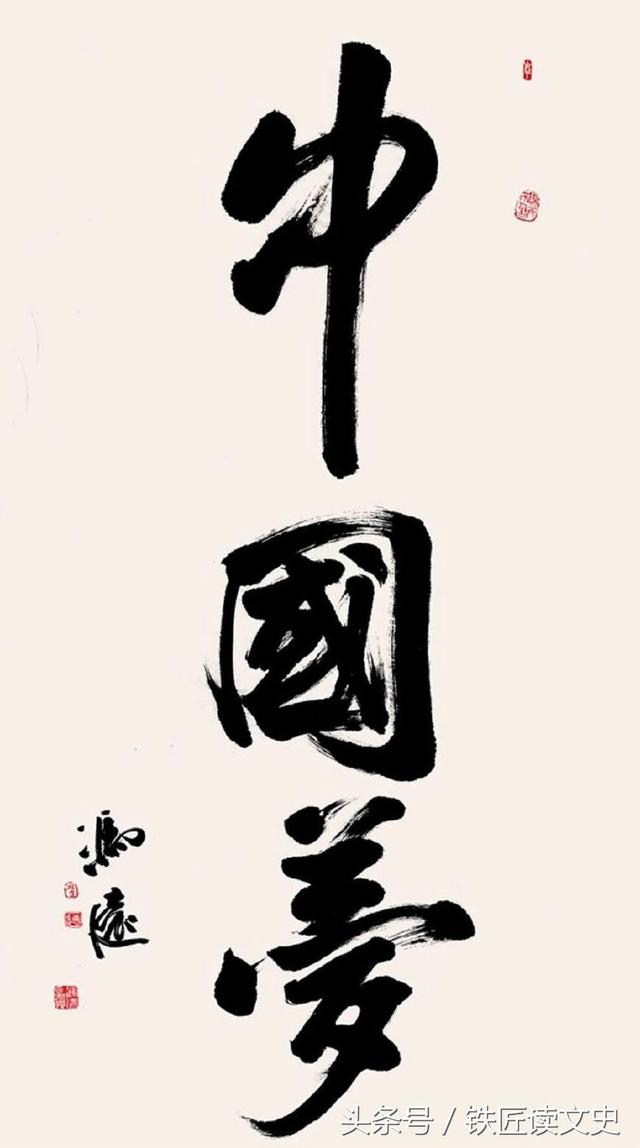 中國夢
馮遠
头条号 / 铁匠读文史